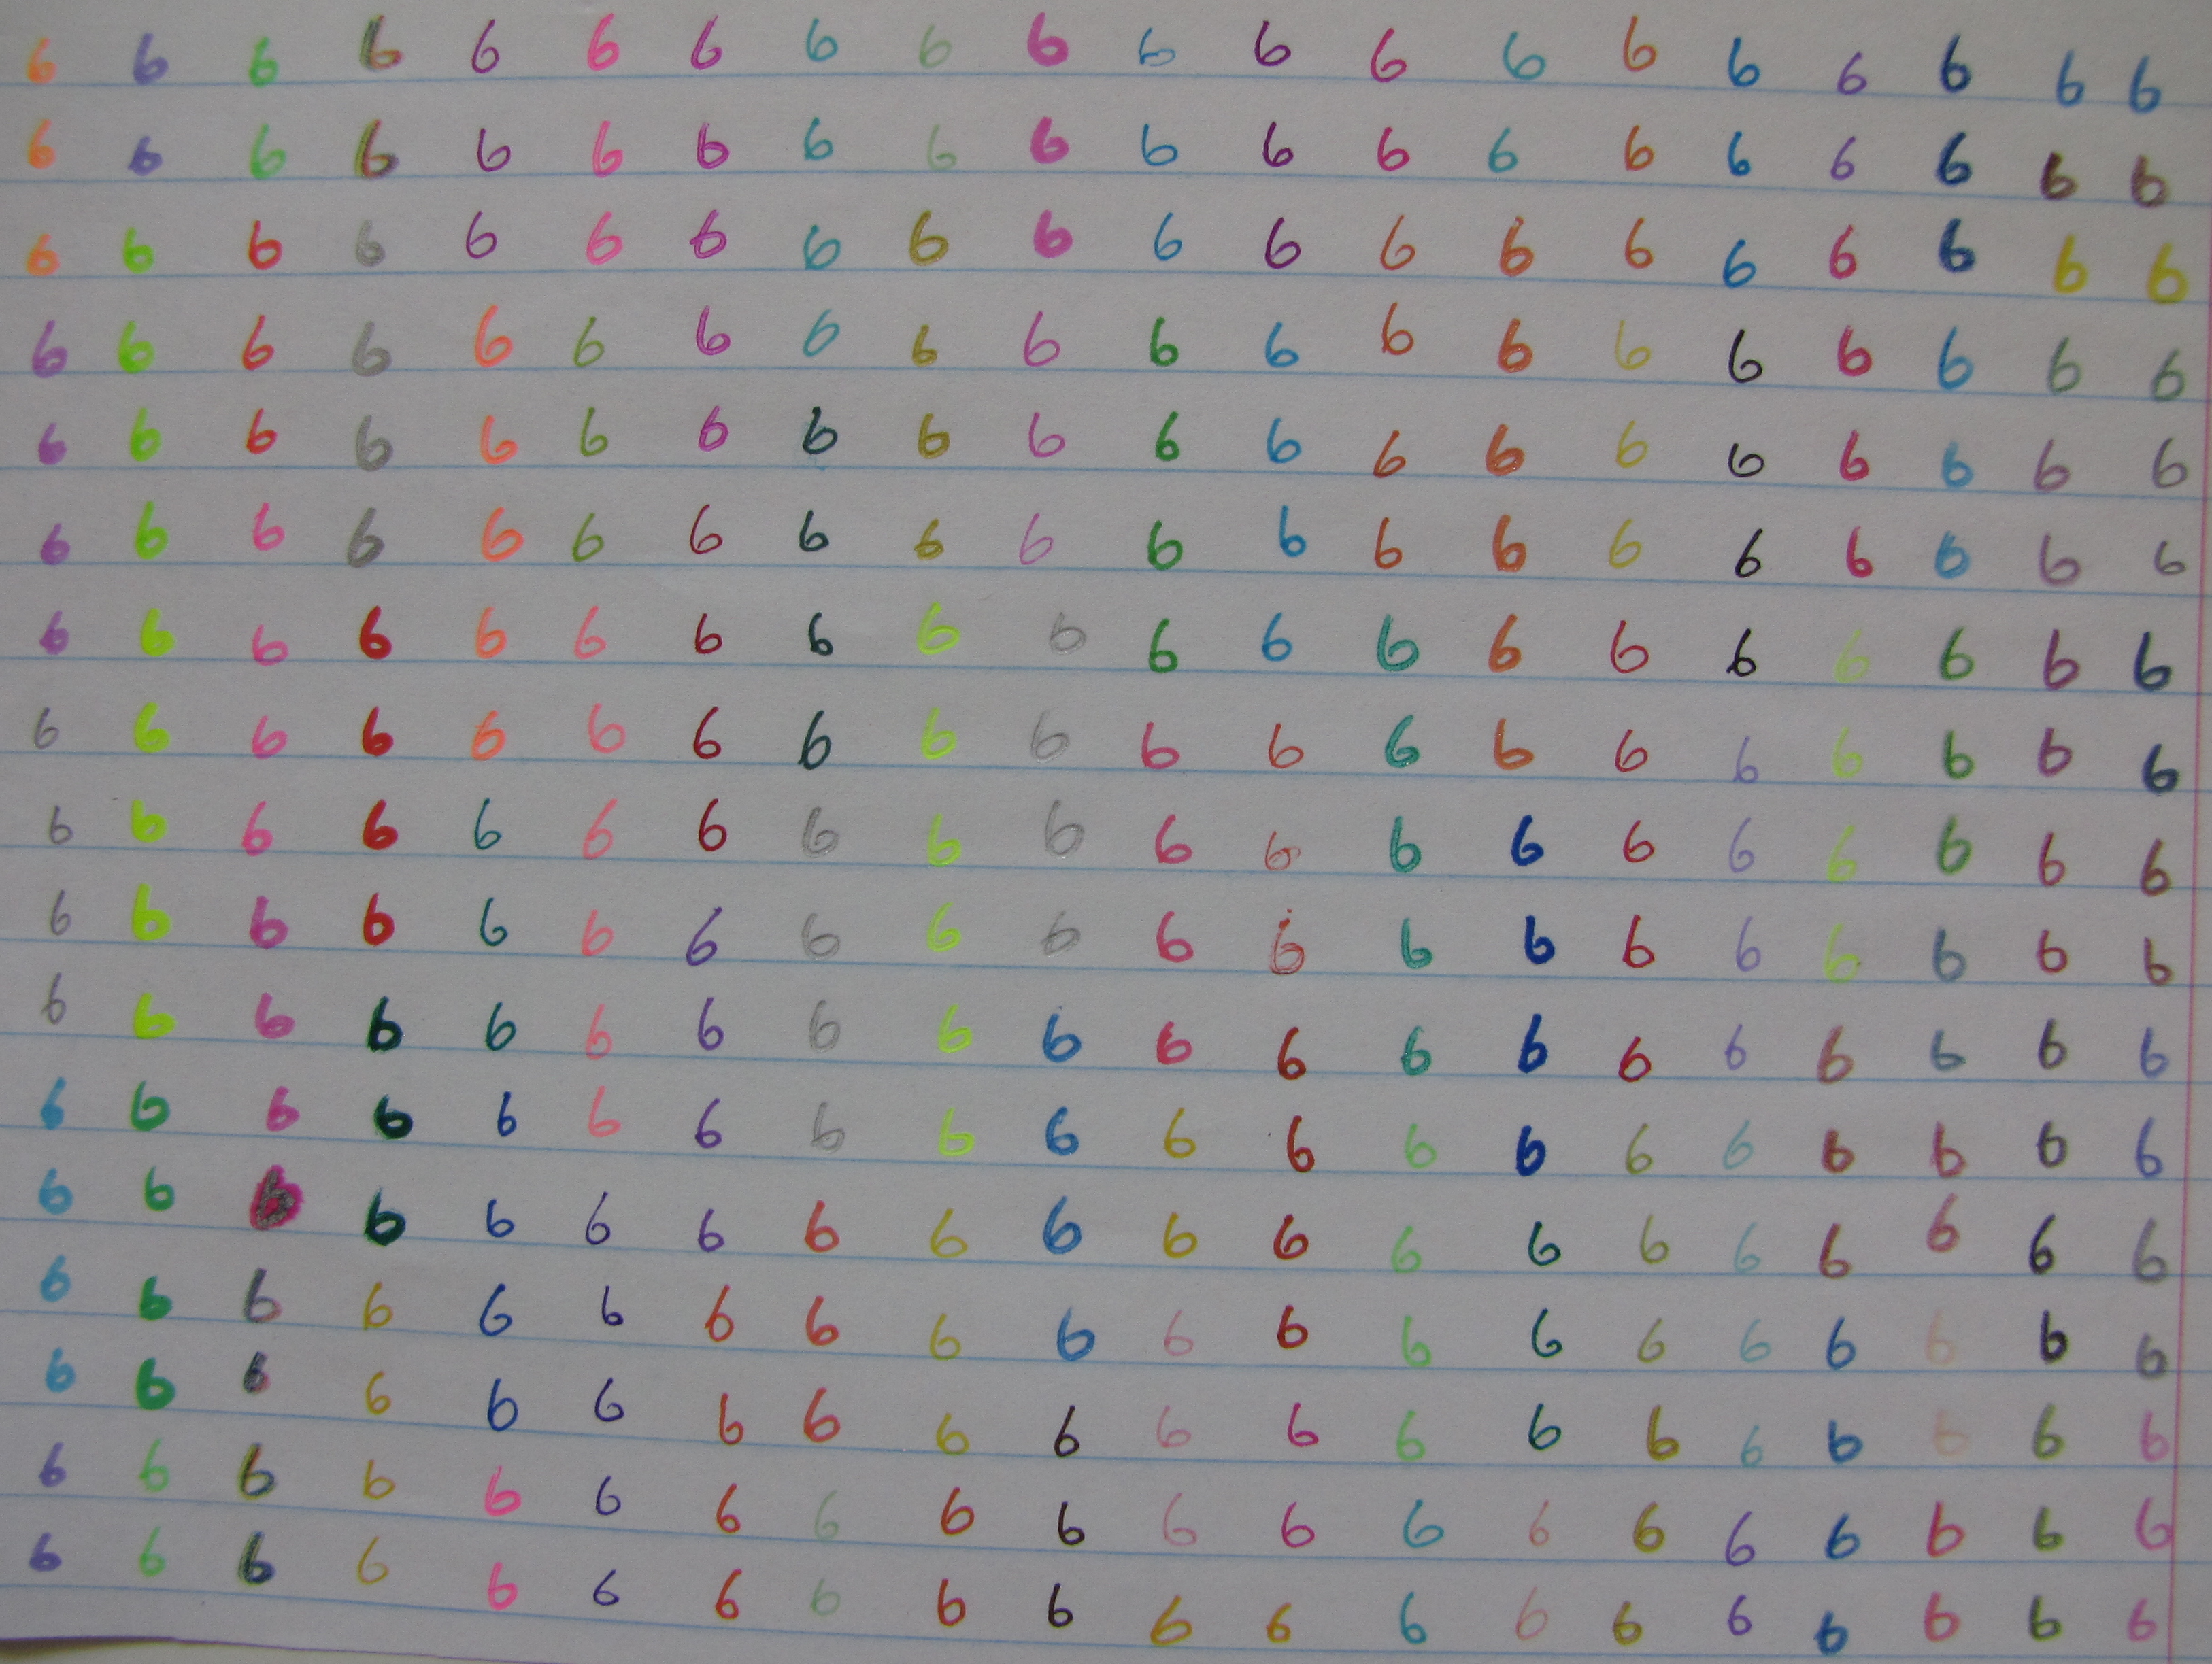 6 6 6 6 6 6 6 6 6 6 6 6 6 6 6 6 6 6 6 6
6 6 6 6 6 6 6 6 6 6 6 6 6 6 6 6 6 6 6 6
6 6 6 6 6 6 6 6 6 6 6 6 6 6 6 6 6 6 6 6
6 6 6 6 6 6 6 6 6 6 6 6 6 6 6 6 6 6 6 6
6 6 6 6 6 6 6 6 6 6 6 6 6 6 6 6 6 6 6 6
6 6 6 6 6 6 6 6 6 6 6 6 6 6 6 6 6 6 6 6
6 6 6 6 6 6 6 6 6 6 6 6 6 6 6 6 6 6 6 6
6 6 6 6 6 6 6 6 6 6 6 6 6 6 6 6 6 6 6 6
6 6 6 6 6 6 6 6 6 6 6 6 6 6 6 6 6 6 6 6
6 6 6 6 6 6 6 6 6 6 6 6 6 6 6 6 6 6 6 6
6 6 6 6 6 6 6 6 6 6 6 6 6 6 6 6 6 6 6 6
6 6 6 6 6 6 6 6 6 6 6 6 6 6 6 6 6 6 6 6
6 6 6 6 6 6 6 6 6 6 6 6 6 6 6 6 6 6 6 6
6 6 6 6 6 6 6 6 6 6 6 6 6 6 6 6 6 6 6 6
6 6 6 6 6 6 6 6 6 6 6 6 6 6 6 6 6 6 6 6
6 6 6 6 6 6 6 6 6 6 6 6 6 6 6 6 6 6 6 6
6 6 6 6 6 6 6 6 6 6 6 6 6 6 6 6 6 6 6 6